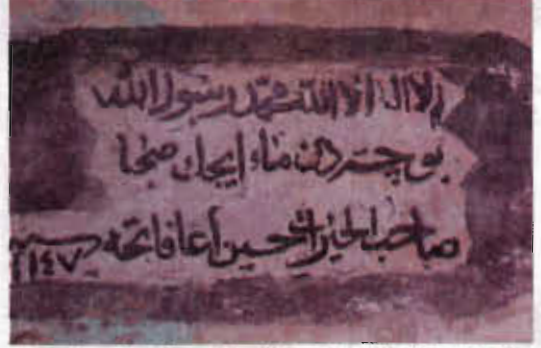 لا اله الا الله محمد رسول الله
بو چشمه دن ماء ايچك صحا
صاحب الخيرات حسين اغا فاتحه سنه ١١٤٧